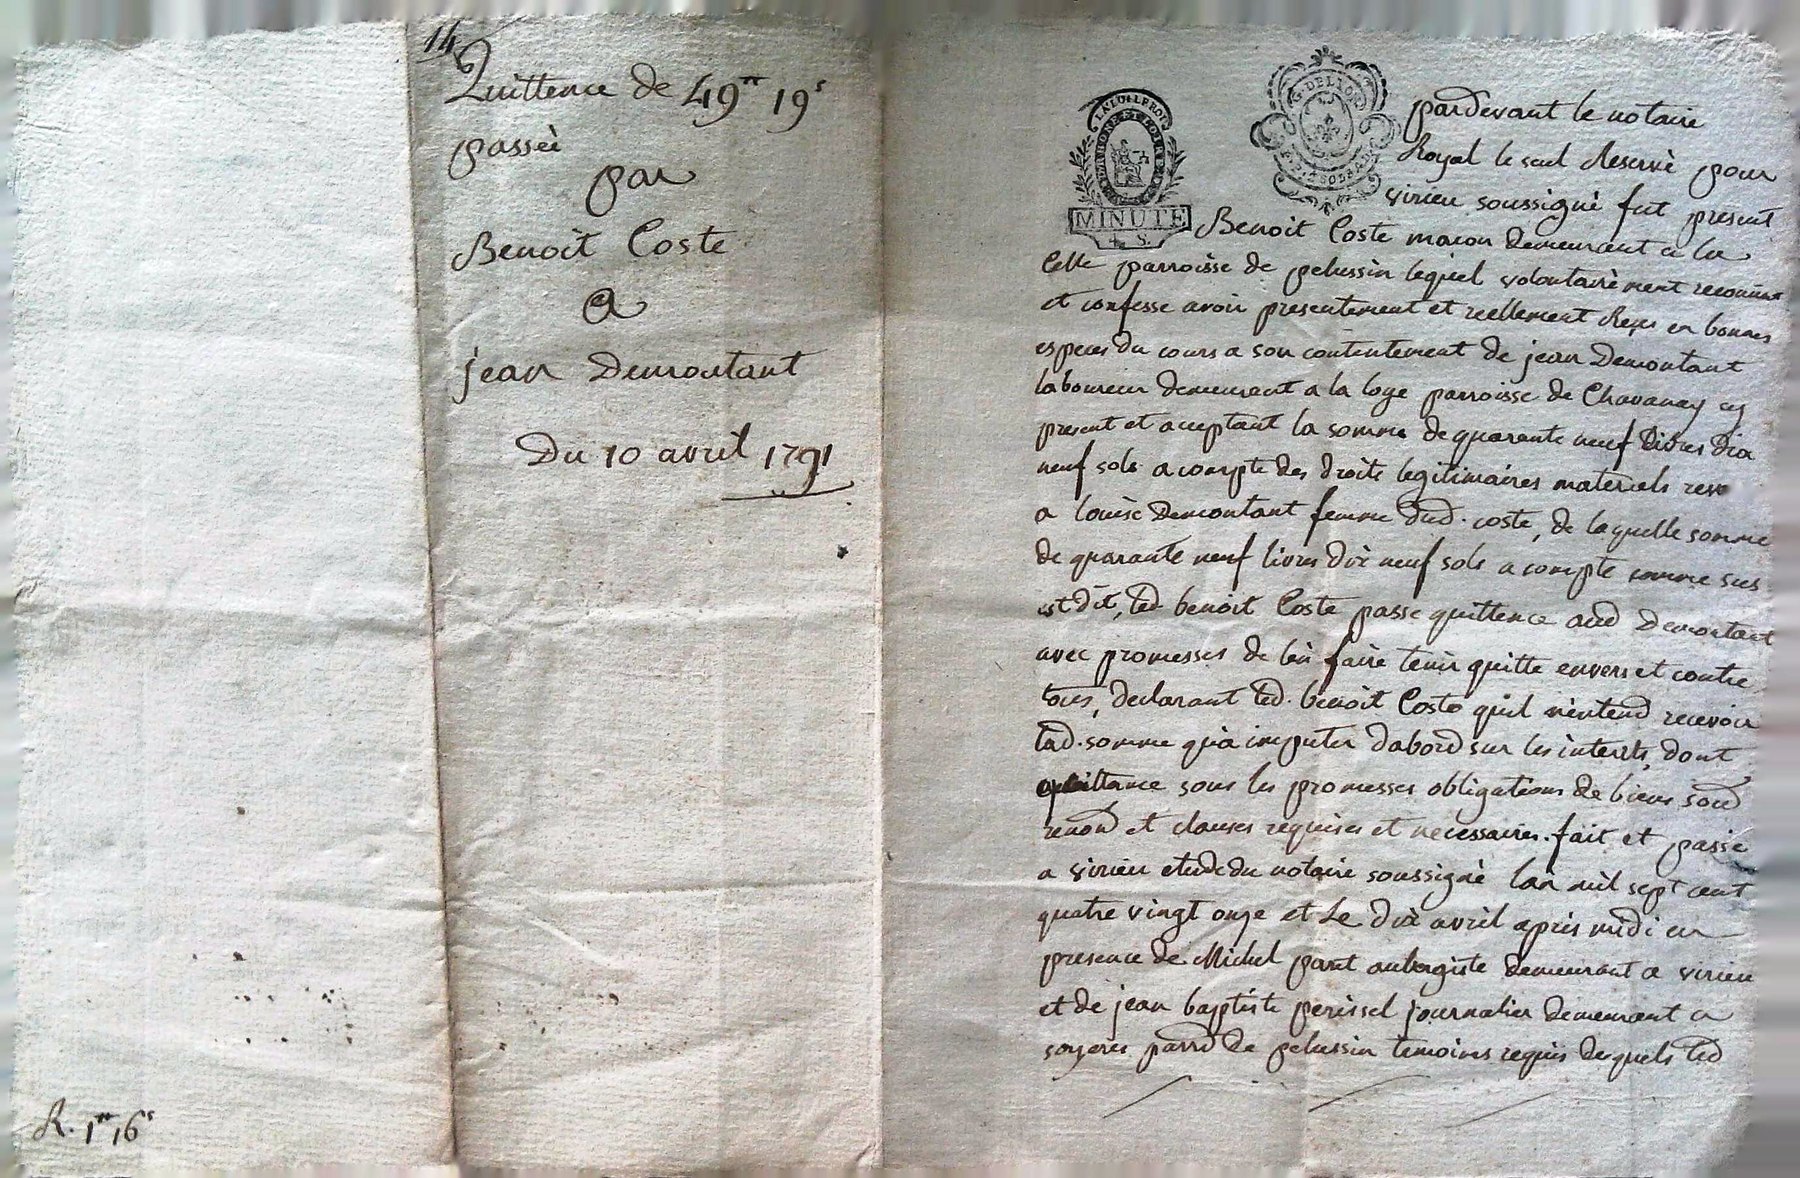 14
Quittence de 49ᵗᵗ 19ˢ
passèè
par
Benoit Coste
a
jean Demontant
Du 10 avril 1791
R. 1ᵗᵗ 16ˢ
LA LOI LE ROI
MINUTE
4 S.
G. DE LYON
pardevant le notaire
Royal le seul Reservè pour
virieu soussignè fut present
Benoit Coste macon demeurant a la
Celle parroisse de pelussin lequel volontairement reconnut
et confesse avoir presentement et reellement Reçu en bonnes
especes du cours a son contentement de jean Demontant
laboureur demeurant a la loge parroisse de Chavanay cy
present et aceptant la somme de quarante neuf Livres dix
neuf sols a compte des droits legitimaires maternels
a louise Demontant femme dud. coste, de laquelle somme
de quarante neuf livres dix neuf sols a compte comme sus
est dit, led. benoit Coste passe quittence aud Demontant
avec promesses de len faire tenir quitte envers et contre
tous, declarant led. benoit Coste quil n'entend recevoir
lad. somme qu'a imputer dabord sur les interets, dont
quittance sous les promesses obligations de biens soud
renond et clauses requises et necessaires. fait et passè
a virieu etude du notaire soussignè lan mil sept cent
quatre vingt onze et Le dix avril après midi en
presence de Michel parat aubergiste demeurant a virieu
et de jean baptiste perissel journalier demeurant a
soyeres parrd de pelussin temoins requis desquels led